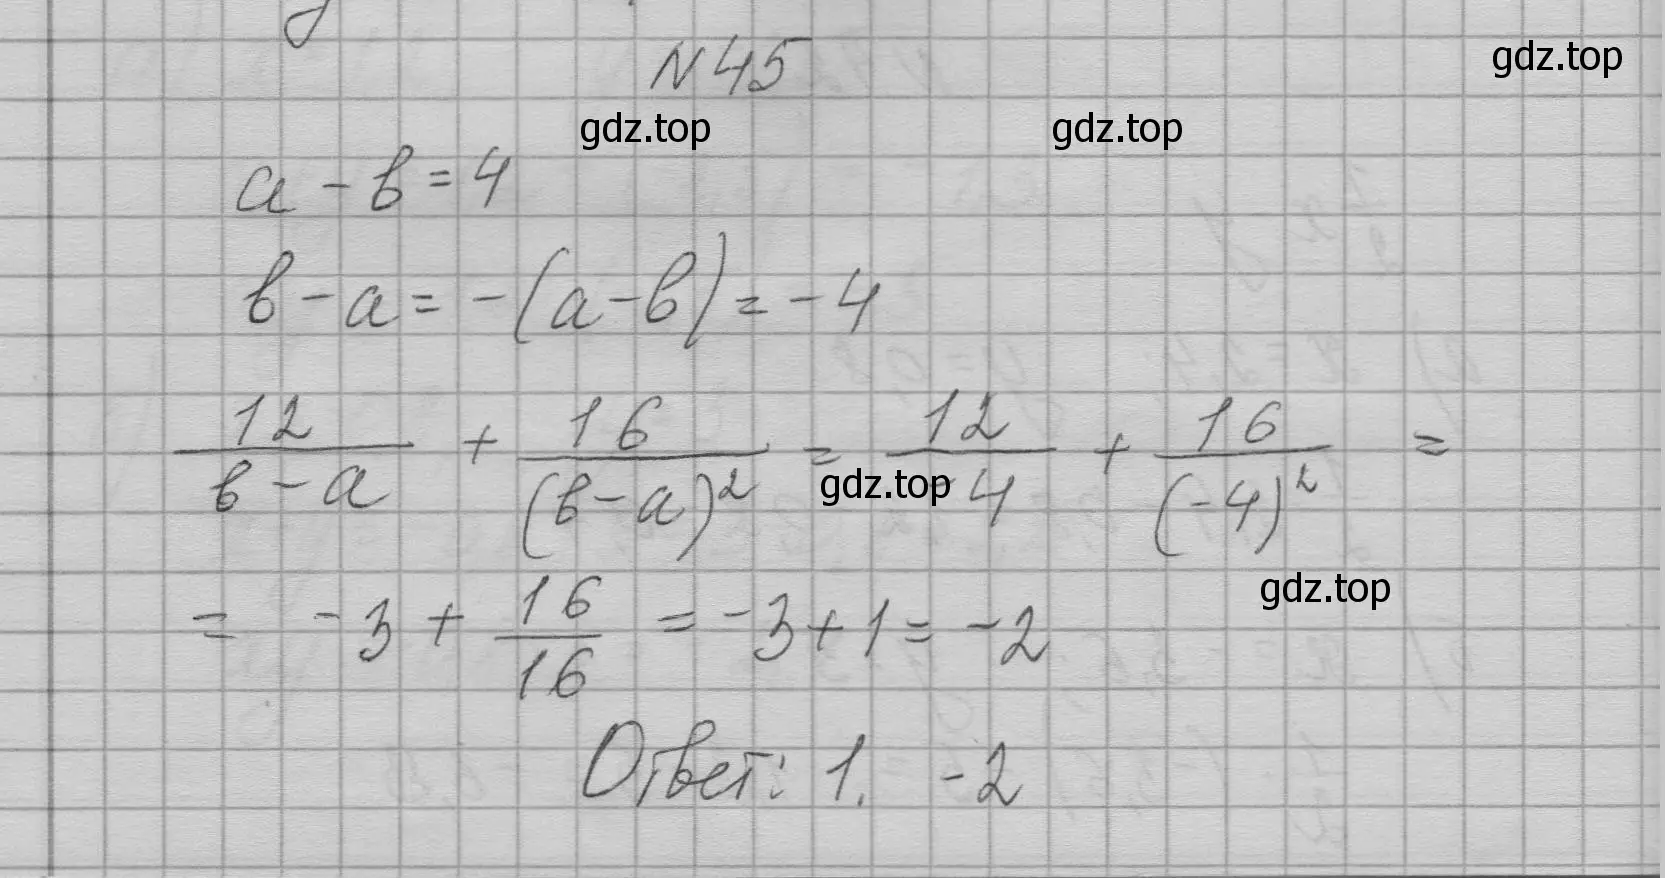 N 45
gdz.top
gdz.top gdz.top
a - b = 4
b - a = -(a - b) = -4
12/(b - a) + 16/(b - a)² = 12/(-4) + 16/(-4)² =
gdz.top
= -3 + 16/16 = -3 + 1 = -2
gdz.top
Ответ: 1. -2